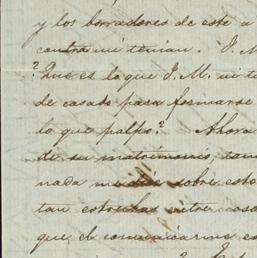 y los borradores de este a
contra mi tenian. J. M
? Que es lo que J. M. ni t
de casato para formarse
lo que palpo? Ahora
de su matrimonio, tan
nada sobre esto
tan estrechas entre casa
que el comunicarme es